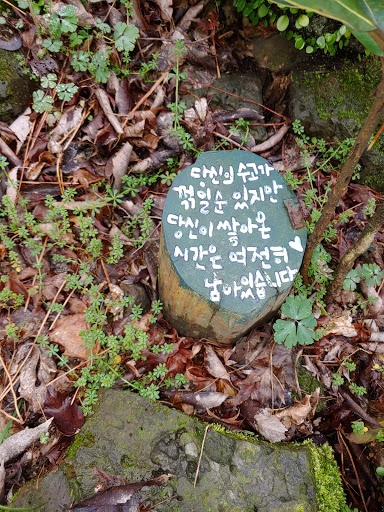 당신의 수고가
꺾일순 있지만
당신이 쌓아온
시간은 여전히 ♥
남아있습니다